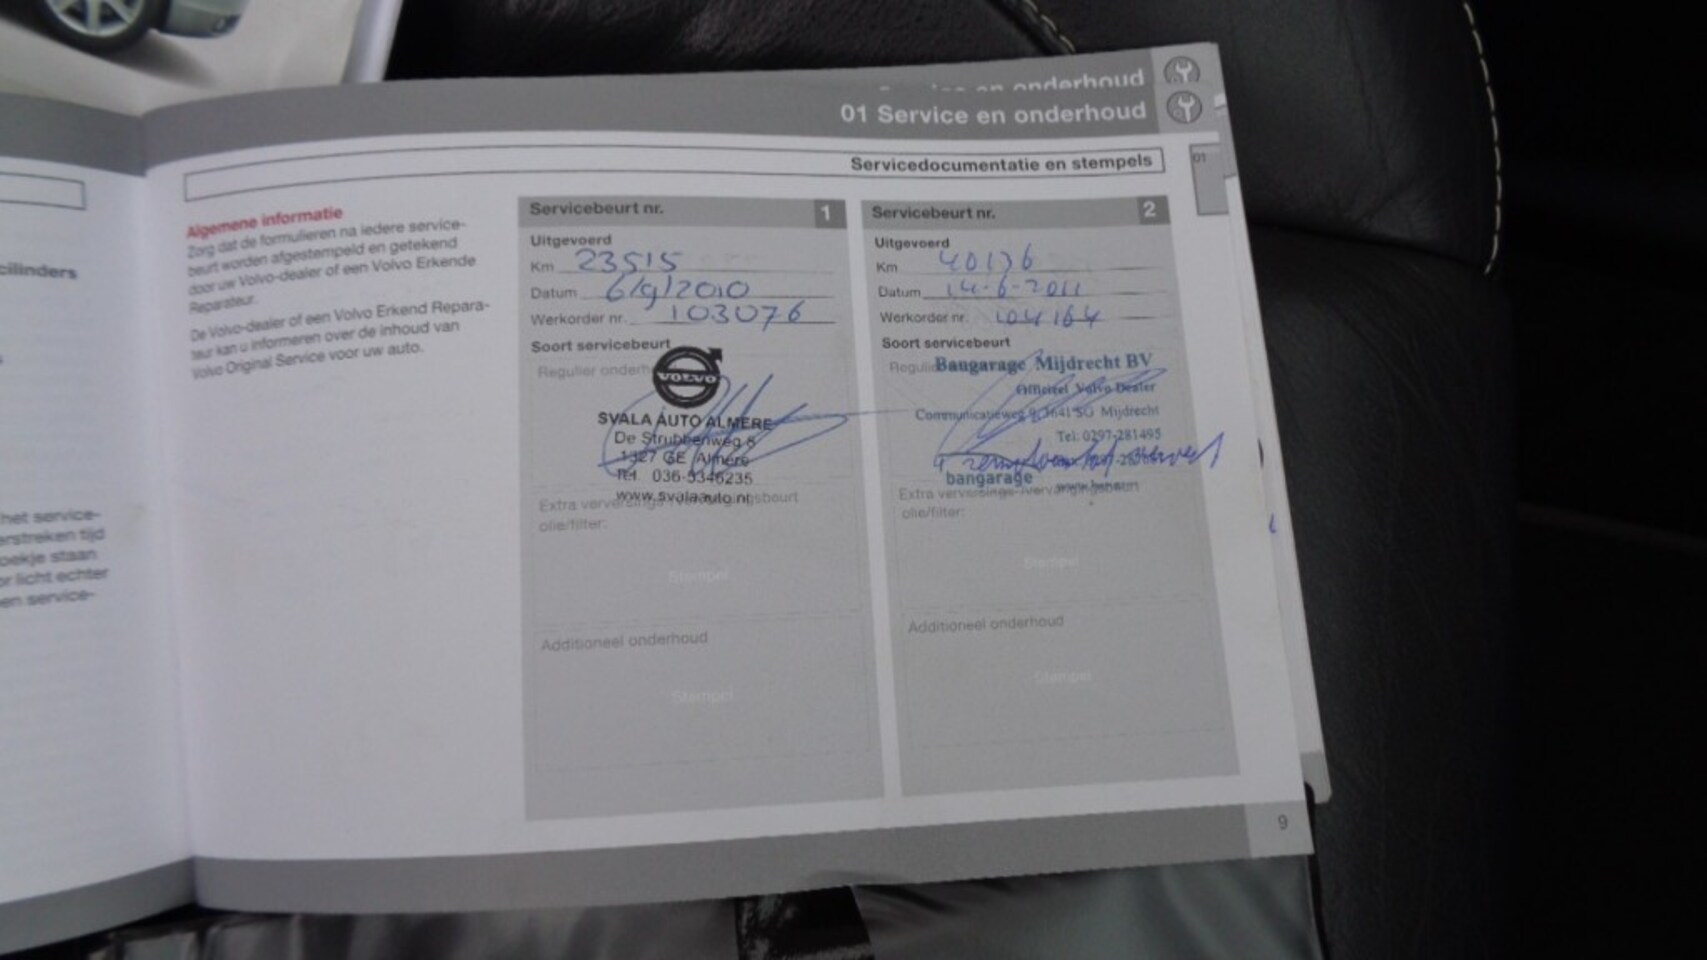 Service en onderhoud
01 Service en onderhoud
Servicedocumentatie en stempels
01
cilinders
het service-
erstreken tijd
oekje staan
or licht echter
en service-
Algemene informatie
Zorg dat de formulieren na iedere service-
beurt worden afgestempeld en getekend
door uw Volvo-dealer of een Volvo Erkende
Reparateur.
De Volvo-dealer of een Volvo Erkend Repara-
teur kan u informeren over de inhoud van
Volvo Original Service voor uw auto.
Servicebeurt nr. 1
Uitgevoerd
Km 23515
Datum 6/9/2010
Werkorder nr. 103076
Soort servicebeurt
Regulier onderh
VOLVO
SVALA AUTO ALMERE
De Strubbenweg 8
1327 GE Almere
Tel. 036-5346235
www.svalaauto.nl
Extra verversings-/vervangingsbeurt
olie/filter:
Stempel
Additioneel onderhoud
Stempel
Servicebeurt nr. 2
Uitgevoerd
Km 40136
Datum 14-6-2011
Werkorder nr. 104164
Soort servicebeurt
Regulie
Bangarage Mijdrecht BV
Officieel Volvo Dealer
Communicatieweg 9, 3641 SG Mijdrecht
Tel: 0297-281495
bangarage
Extra verversings-/vervangingsbeurt
olie/filter:
Stempel
Additioneel onderhoud
Stempel
9